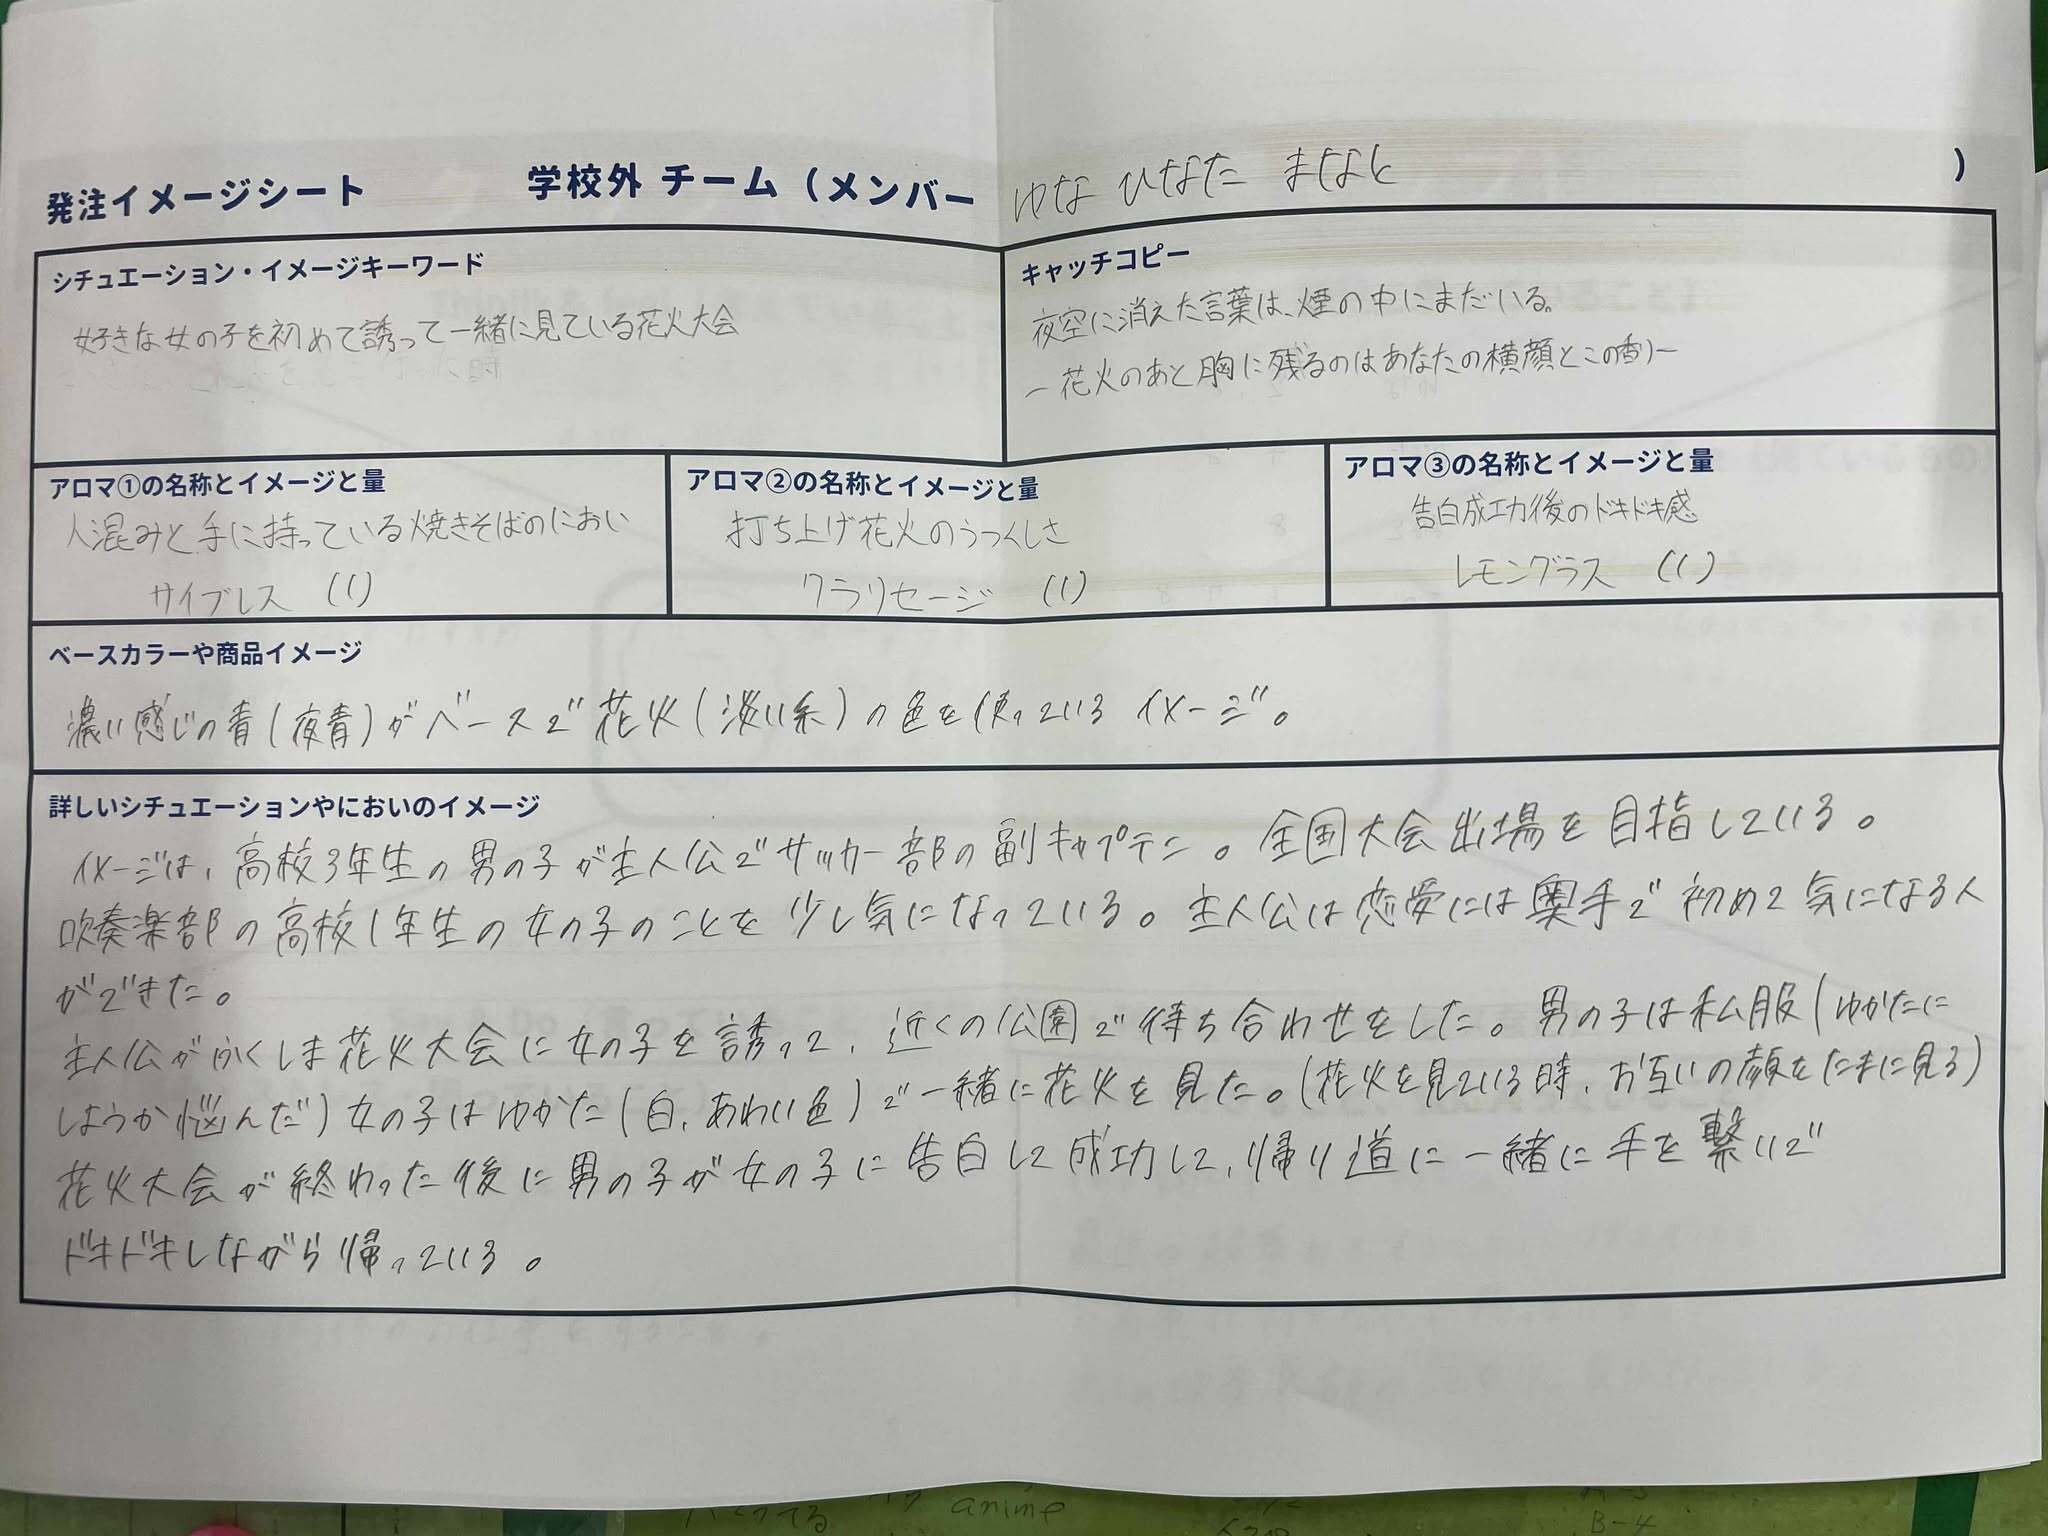 発注イメージシート 学校外 チーム（メンバー ゆな ひなた まなと ）
シチュエーション・イメージキーワード
好きな女の子を初めて誘って一緒に見ている花火大会
キャッチコピー
夜空に消えた言葉は、煙の中にまだいる。
ー花火のあと胸に残るのはあなたの横顔とこの香りー
アロマ①の名称とイメージと量
人混みと手に持っている焼きそばのにおい
サイプレス (1)
アロマ②の名称とイメージと量
打ち上げ花火のうつくしさ
クラリセージ (1)
アロマ③の名称とイメージと量
告白成功後のドキドキ感
レモングラス (1)
ベースカラーや商品イメージ
濃い感じの青(夜青)がベースで花火(淡い系)の色を使っている イメージ。
詳しいシチュエーションやにおいのイメージ
イメージは、高校3年生の男の子が主人公でサッカー部の副キャプテン。全国大会出場を目指している。
吹奏楽部の高校1年生の女の子のことを少し気になっている。主人公は恋愛には奥手で初めて気になる人
ができた。
主人公がふくしま花火大会に女の子を誘って、近くの公園で待ち合わせをした。男の子は私服(ゆかたに
しようか悩んだ)女の子はゆかた(白、あわい色)で一緒に花火を見た。(花火を見ている時、お互いの顔をたまに見る)
花火大会が終わった後に男の子が女の子に告白して成功して、帰り道に一緒に手を繋いで
ドキドキしながら帰っている。
anime
B-4